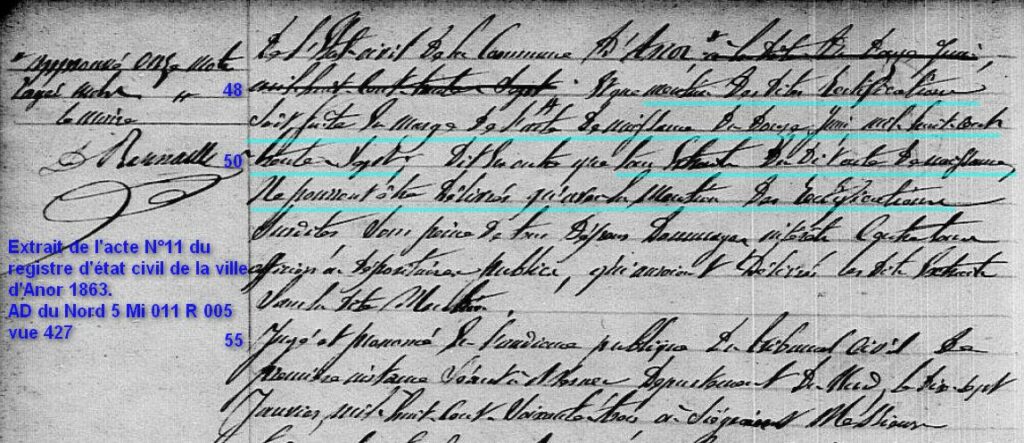 approuvé onze mots
rayés nuls
le maire
48
50
Extrait de l'acte N°11 du
registre d'état civil de la ville
d'Anor 1863.
AD du Nord 5 Mi 011 R 005
vue 427
55
De l'Etat civil De la Commune D'Anor, à la date Du Douze Juin,
mil huit Cent trente Sept. Et que mention Des dites Rectifications
soit faite En marge De l'acte De naissance Du Douze Juin mil huit Cent
trente Sept. Dit En outre que tous Extraits Du Dit acte De naissance,
Ne pourront être Délivrés qu'avec la Mention Des Rectifications
Susdites Sous peine De tous Dépens Dommages intérêts Contre tous
officiers ou Dépositaires publics, qui auraient Délivrés les dits Extraits
Sans la dite Mention.
Jugé et prononcé En l'audience publique Du tribunal Civil De
Première instance Séant à Avesnes Département Du Nord, le Dix-Sept
Janvier, mil huit Cent Soixante trois où siégeaient Messieurs